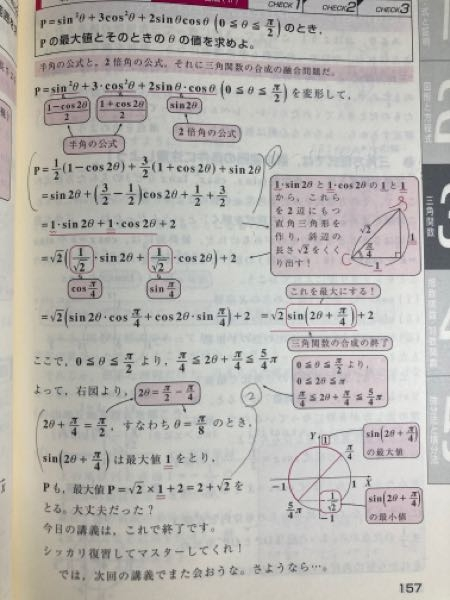 CHECK 1 CHECK2 CHECK3
P=sin²θ+3cos²θ+2sinθcosθ (0≦θ≦π/2)のとき,
Pの最大値とそのときのθの値を求めよ。
半角の公式と, 2倍角の公式。それに三角関数の合成の融合問題だ。
P=sin²θ+3・cos²θ+2sinθ・cosθ (0≦θ≦π/2)を変形して,
(1-cos2θ)/2 (1+cos2θ)/2 sin2θ
半角の公式 2倍角の公式
P=1/2(1-cos2θ)+3/2(1+cos2θ)+sin2θ
=sin2θ+(3/2-1/2)cos2θ+1/2+3/2
=1・sin2θ+1・cos2θ+2
=√2(1/√2・sin2θ+1/√2・cos2θ)+2
cosπ/4 sinπ/4
1・sin2θと1・cos2θの1と1
から, これら
を2辺にもつ
直角三角形を
作り, 斜辺の
長さ√2をく
くり出す!
√2 π/4 1 1
これを最大にする!
=√2(sin2θ・cosπ/4+cos2θ・sinπ/4)+2=√2sin(2θ+π/4)+2
三角関数の合成の終了
ここで, 0≦θ≦π/2より, π/4≦2θ+π/4≦5/4π
0≦θ≦π/2より
0≦2θ≦π
π/4≦2θ+π/4≦5/4π
よって, 右図より, 2θ=π/2-π/4
②
2θ+π/4=π/2, すなわちθ=π/8のとき,
sin(2θ+π/4)は最大値1をとり,
Pも, 最大値P=√2×1+2=2+√2を
とる。大丈夫だった?
Y 1 π/4 -1 1 X 5/4π -1/√2
sin(2θ+π/4)
の最大値
sin(2θ+π/4)
の最小値
今日の講義は, これで終了です。
シッカリ復習してマスターしてくれ!
では, 次回の講義でまた会おうな。さようなら…。
図形と方程式
3
三角関数
4
157